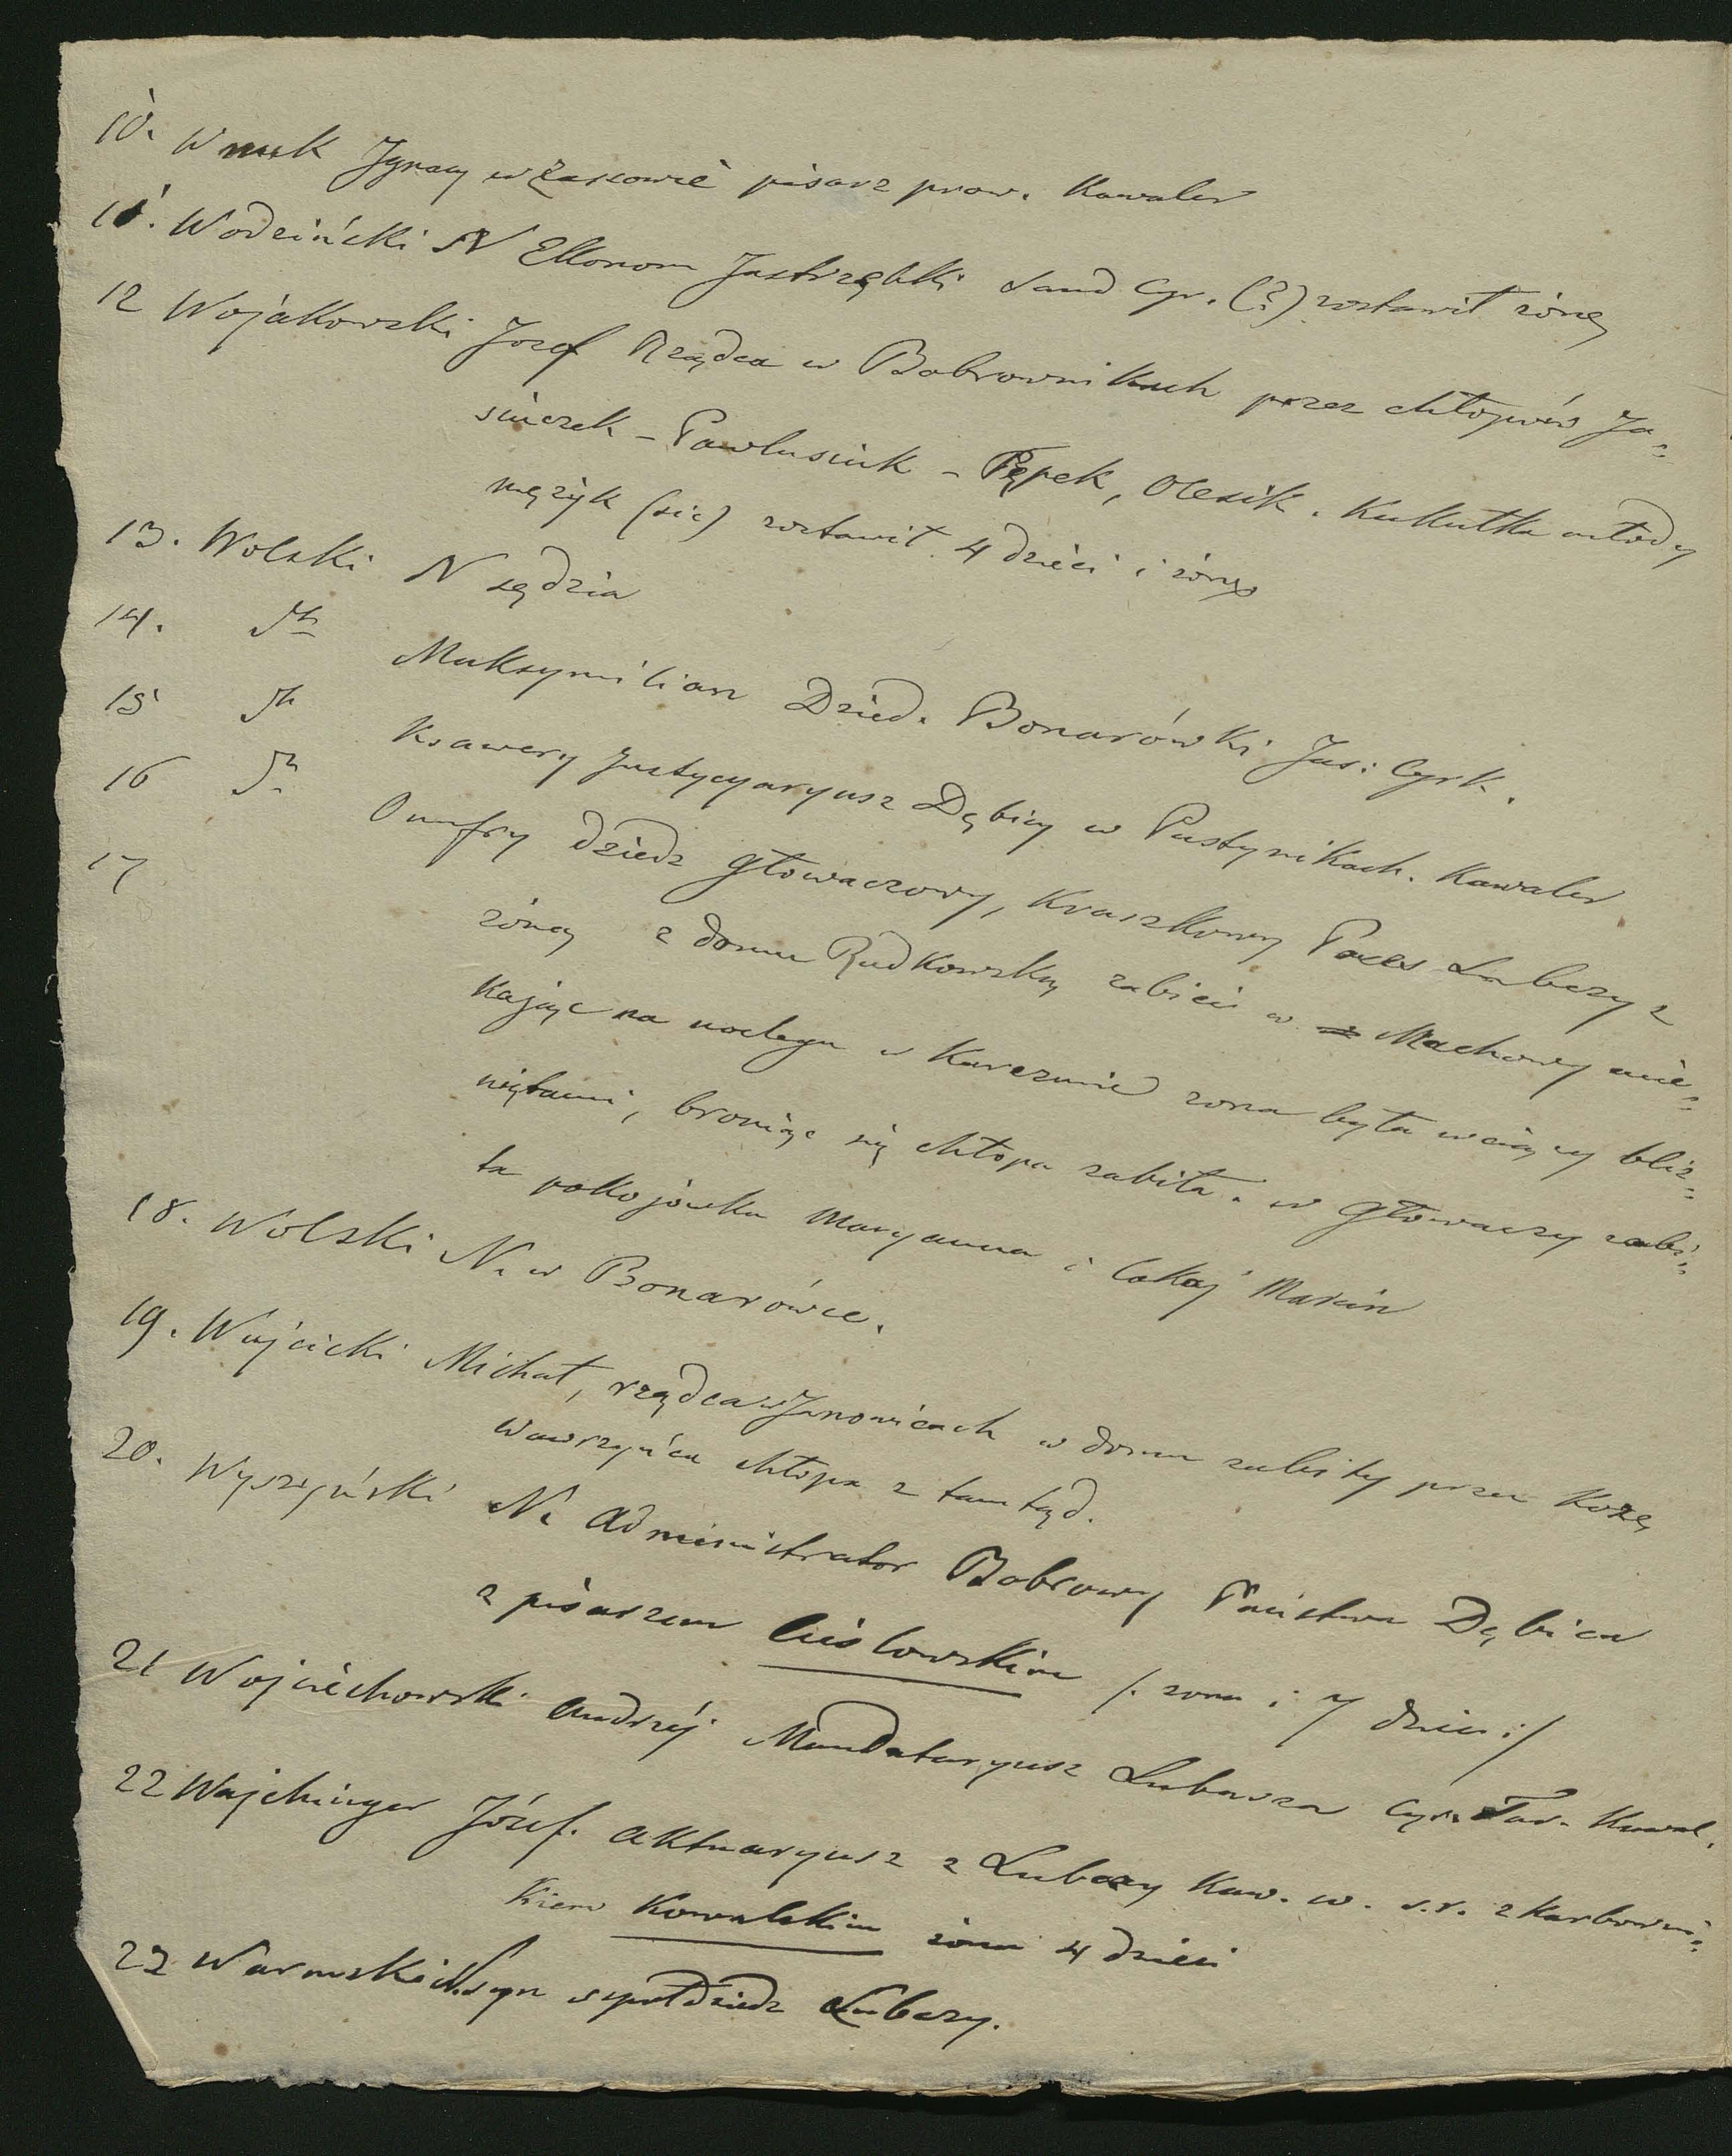 10. Wnuk Ignacy w Zassowie pisarz prow. Kawaler
11. Wodziński N Ekonom Jastrząbki Sand Cyr. (?) zostawił żonę
12 Wojakowski Jozef Rządca w Bobrownikach przez chłopów Ja=
siaczek - Pawlusiuk - Pępek, Olesik. Kukułka młody
mężyk (sic) zostawił 4 dzieci i żonę
13. Wolski N sędzia
14. Th Maksymilian Dzied. Bonarówki Jas: Cyrk.
15 Th Ksawery Justycyaryusz Dębicy w Pustynikach. Kawaler
16 Th Onufry dziedz Głowaczowy, Kraszkowy Poces Lubczy z
17 żoną z domu Rudkowską zabici w Machowy mie=
kając na noclegu w Karczmie żona była w ciąży bliź=
niętami, broniąc się chłopa zabiła. w Głowaczy zabi=
ta pokojówka Maryanna i lokaj Marcin
18. Wolski N. w Bonarówce.
19. Wujcicki Michał, rządca w Janowicach w domu zabity przez Kozę
Wawrzyńca chłopa z tamtąd.
20. Wyszyński N. Administrator Bobrowy Państwa Dębica
z pisarzem Cisłowskim /. żona i 7 dzieci :/
21 Wojciechowski Andrzéj Mandataryusz Lubasza Cyr. Tar. Kawal.
22 Wajchinger Józef. Aktuaryusz z Lubczy Kaw. w. s.r. z Karbowni=
kiem Kowalskim żona 4 dzieci
23 Warmski N. syn wspołdziedz Lubczy.